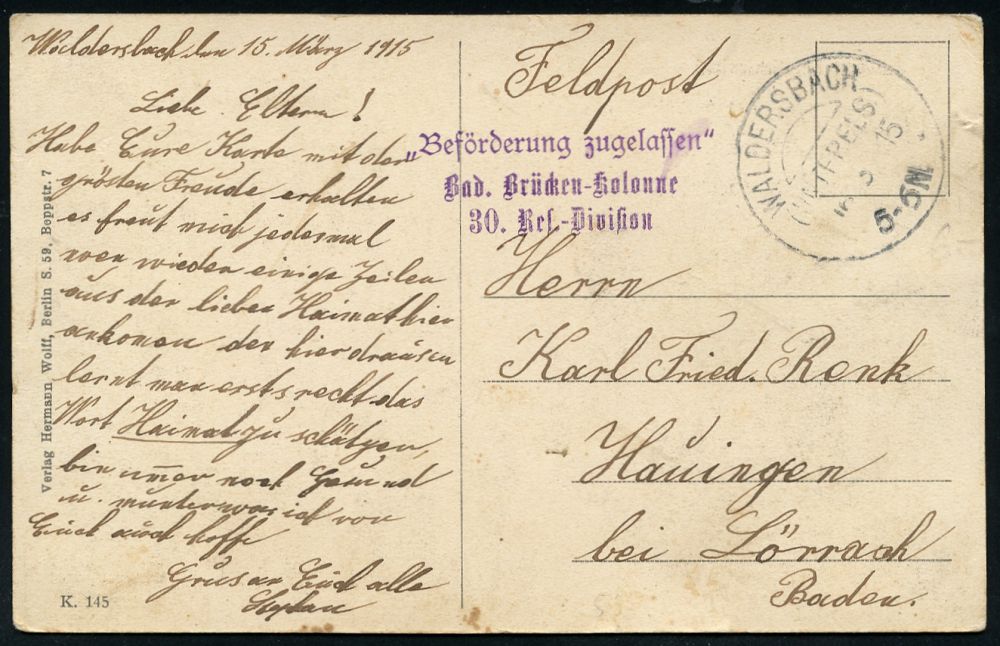 Waldersbach den 15. März 1915
Liebe Eltern!
Habe Eure Karte mit der
grösten Freude erhalten
es freut mich jedesmal
wen wieder einige Zeilen
aus der lieben Haimat hier
ankomen den hier drausen
lernt man erst recht das
Wort Haimat zu schätzen,
bin immer noch Gesund
u. munter was ich von
Euch auch hoffe
Grus an Euch alle
Verlag Hermann Wolff, Berlin S. 59, Boppstr. 7
K. 145
Feldpost
„Beförderung zugelassen“
Bad. Brücken-Kolonne
30. Res.-Division
WALDERSBACH
15
5-6N.
Herrn
Karl Fried. Renk
Hauingen
bei Lörrach
Baden.